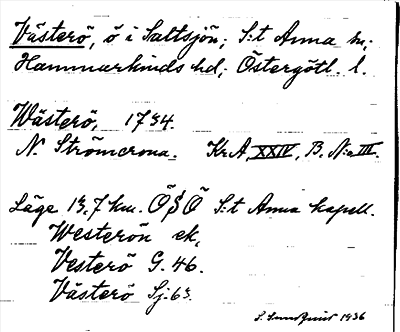 Västerö, ö i Saltsjön; S:t Anna sn;
Hammarkinds hd; Östergötl. l.
Wästerö, 1734.
N. Strömcrona. Kr.A, XXIV, B. N:o III.
Läge 13,7 km. Ö§Ö S:t Anna kapell.
Westerön ek,
Vesterö G. 46.
Västerö Sj. 63.
S. 1936